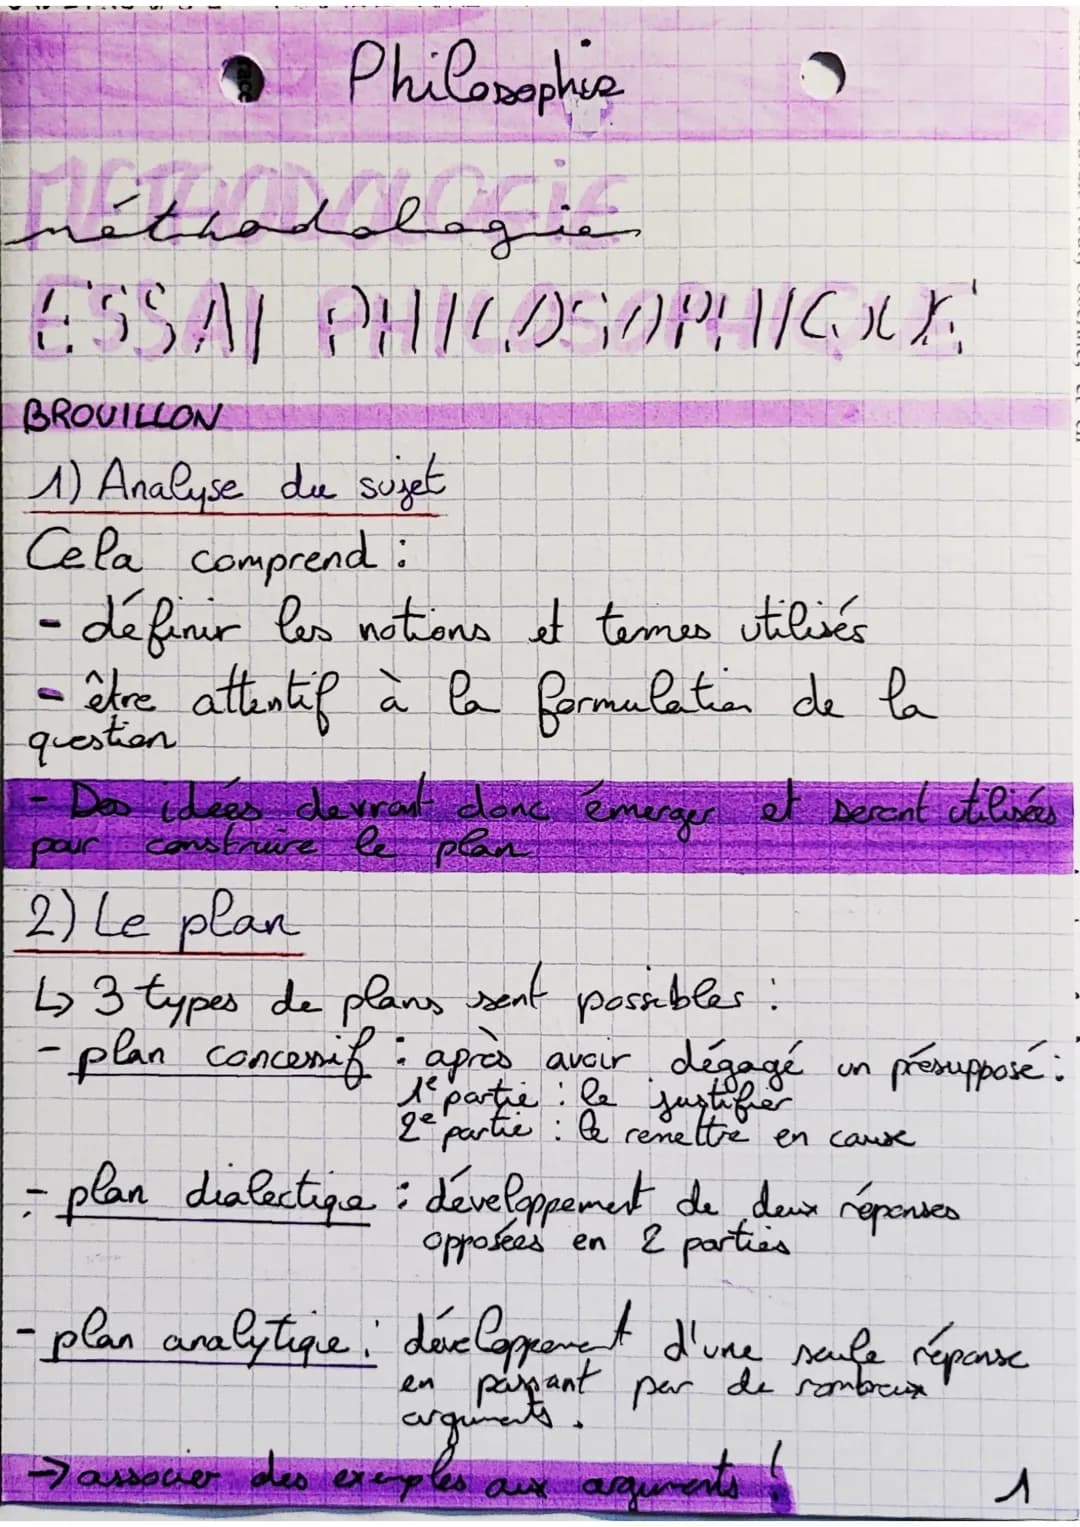 Philosophie
méthodologie
ESSAI PHILOSOPHIQUE
BROUILLON
1) Analyse du sujet
Cela comprend :
- définir les notions et termes utilisés
- être attentif à la formulation de la
question
- Des idées devront donc émerger et seront utilisées
pour construire le plan
2) Le plan
↳ 3 types de plans sont possibles :
- plan concessif : après avoir dégagé un présupposé :
1e partie : le justifier
2e partie : le remettre en cause
- plan dialectique : développement de deux réponses
opposées en 2 parties
- plan analytique : développement d'une seule réponse
en passant par de nombreux
arguments.
→ associer des exemples aux arguments !
1